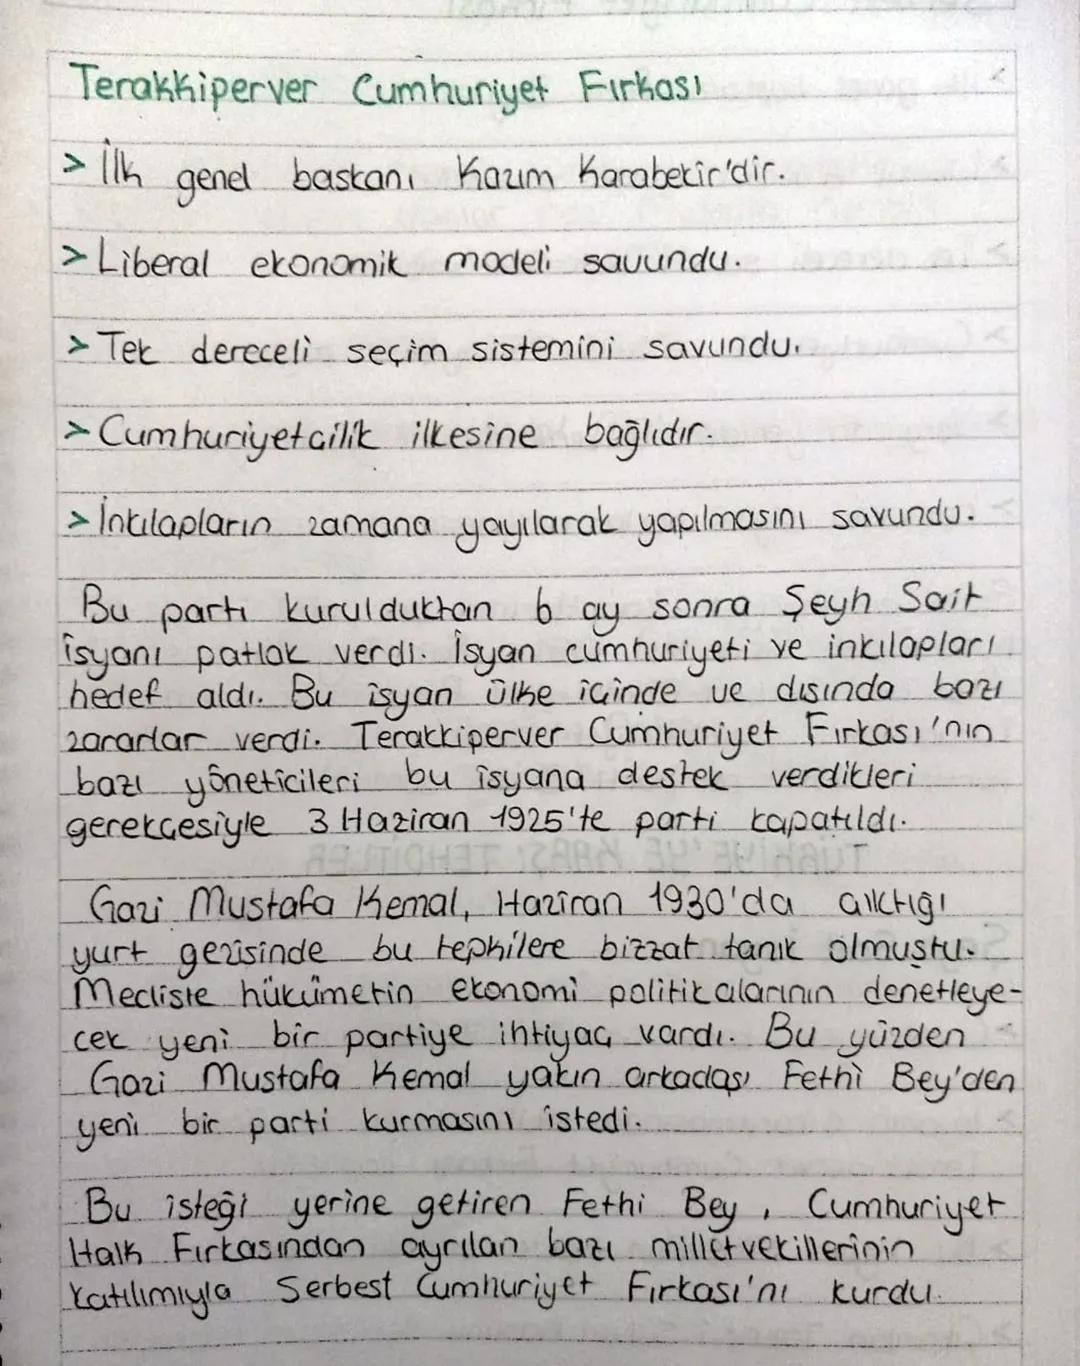 Terakkiperver Cumhuriyet Fırkası
> İlk genel başkanı Kazım Karabekir'dir.
> Liberal ekonomik modeli savundu.
> Tek dereceli seçim sistemini savundu.
> Cumhuriyetçilik ilkesine bağlıdır.
> İnkılapların zamana yayılarak yapılmasını savundu.
Bu parti kurulduktan 6 ay sonra Şeyh Sait
isyanı patlak verdi. İsyan cumhuriyeti ve inkılapları
hedef aldı. Bu isyan ülke içinde ve dışında bazı
zararlar verdi. Terakkiperver Cumhuriyet Fırkası'nın
bazı yöneticileri bu isyana destek verdikleri
gerekçesiyle 3 Haziran 1925'te parti kapatıldı.
Gazi Mustafa Kemal, Haziran 1930'da çıktığı
yurt gezisinde bu tepkilere bizzat tanık olmuştu.
Mecliste hükümetin ekonomi politikalarının denetleye-
cek yeni bir partiye ihtiyaç vardı. Bu yüzden
Gazi Mustafa Kemal yakın arkadaşı Fethi Bey'den
yeni bir parti kurmasını istedi.
Bu isteği yerine getiren Fethi Bey, Cumhuriyet
Halk Fırkasından ayrılan bazı milletvekillerinin
katılımıyla Serbest Cumhuriyet Fırkası'nı kurdu.